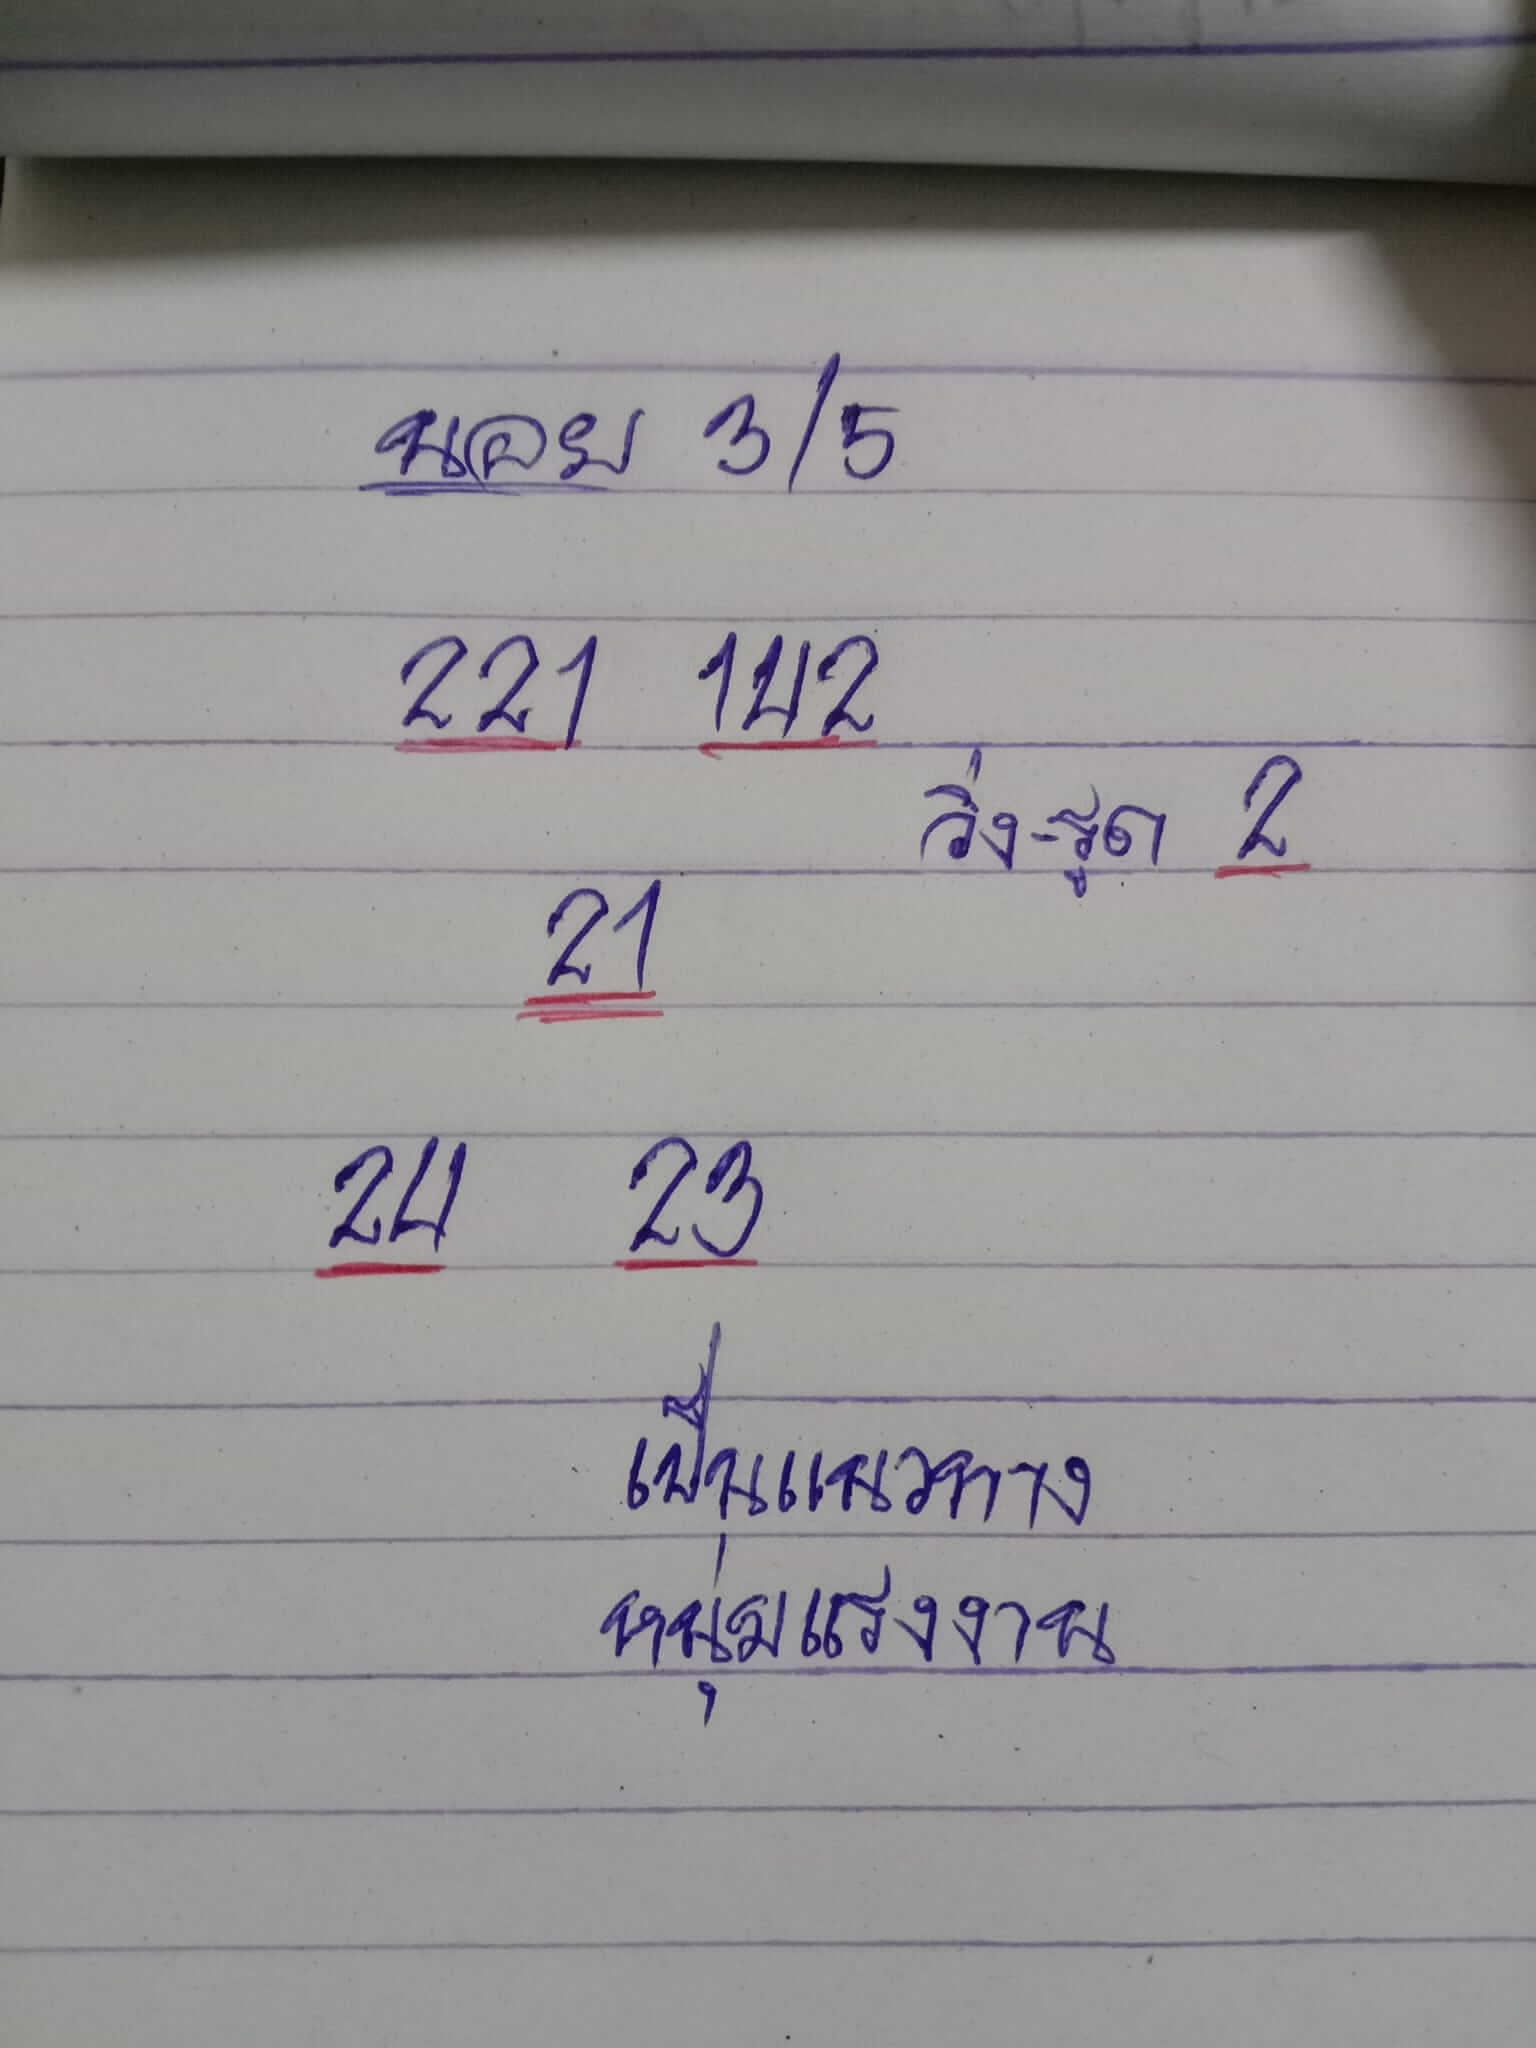 นอย 3/5
221 142
วิ่ง-รูด 2
21
24 23
เป็นแนวทาง
หนุ่มแรงงาน